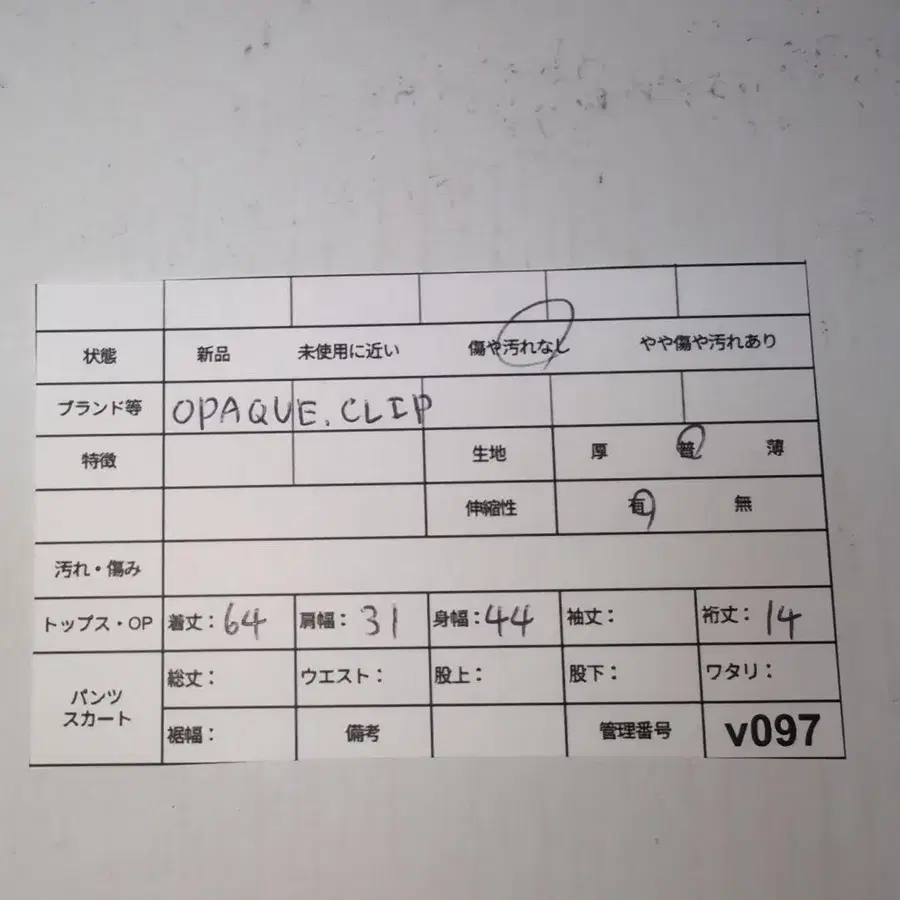 状態 新品 未使用に近い 傷や汚れなし やや傷や汚れあり
ブランド等 OPAQUE.CLIP
特徴 生地 厚 普 薄
伸縮性 有 無
汚れ・傷み
トップス・OP 着丈：64 肩幅：31 身幅：44 袖丈： 裄丈：14
パンツ
スカート
総丈： ウエスト： 股上： 股下： ワタリ：
裾幅： 備考 管理番号 v097